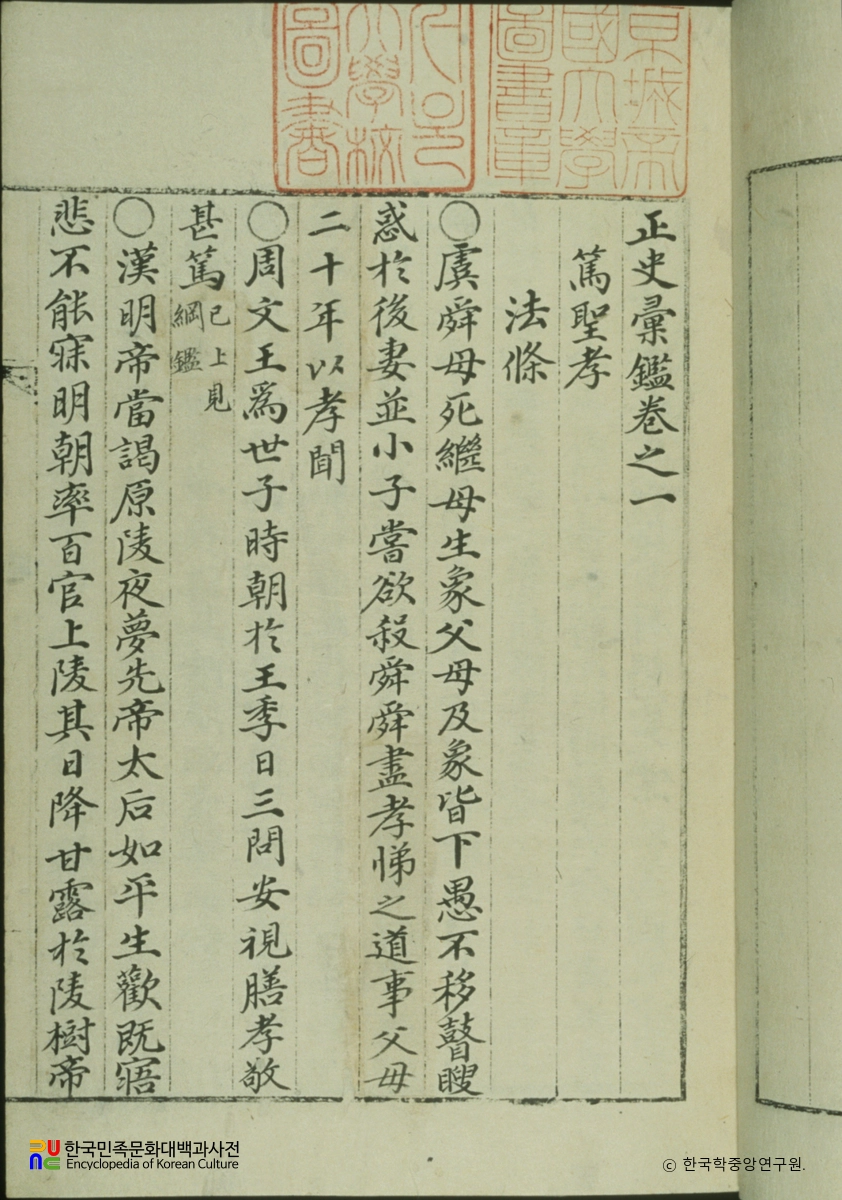 京城帝
國大學
圖書章
서울
大學校
圖書
正史彙鑑卷之一
篤聖孝
法條
〇虞舜母死繼母生象父母及象皆下愚不移瞽瞍
惑於後妻並小子嘗欲殺舜舜盡孝悌之道事父母
二十年以孝聞
〇周文王爲世子時朝於王季日三問安視膳孝敬
甚篤已上見綱鑑
〇漢明帝當謁原陵夜夢先帝太后如平生歡既寤
悲不能寐明朝率百官上陵其日降甘露於陵樹帝
한국민족문화대백과사전
Encyclopedia of Korean Culture
© 한국학중앙연구원.